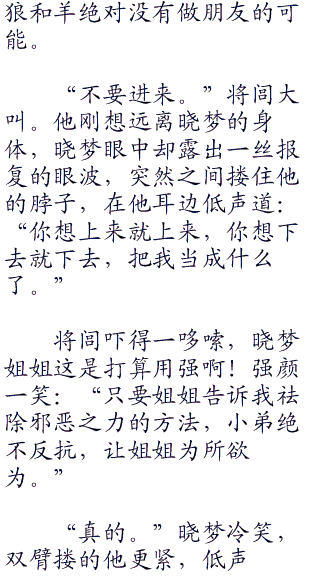 狼和羊绝对没有做朋友的可
能。
“不要进来。”将闾大
叫。他刚想远离晓梦的身
体，晓梦眼中却露出一丝报
复的眼波，突然之间搂住他
的脖子，在他耳边低声道：
“你想上来就上来，你想下
去就下去，把我当成什么
了。”
将闾吓得一哆嗦，晓梦
姐姐这是打算用强啊！强颜
一笑：“只要姐姐告诉我祛
除邪恶之力的方法，小弟绝
不反抗，让姐姐为所欲
为。”
“真的。”晓梦冷笑，
双臂搂的他更紧，低声